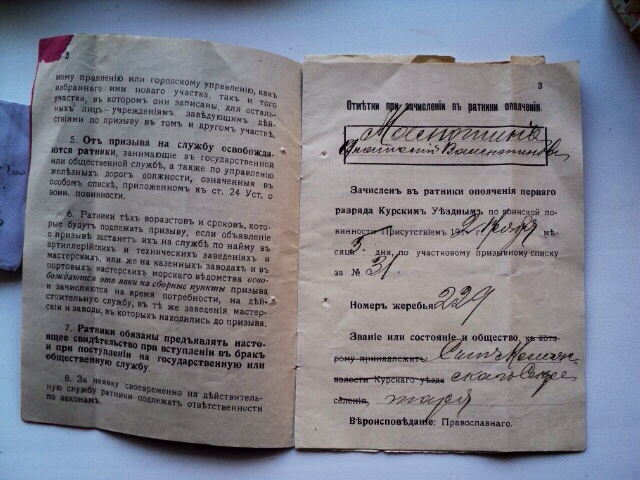 2
ному правленію или городскому управленію, какъ
избраннаго ими новаго участка, такъ и того
участка, въ которомъ они записаны, для осталь-
ныхъ лицъ—учрежденіямъ, завѣдующимъ дѣй-
ствіями по призыву въ томъ и другомъ участкѣ.
5. Отъ призыва на службу освобожда-
ются ратники, занимающіе въ государственной
или общественной службѣ, а также по управленію
желѣзныхъ дорогъ должности, означенныя въ
особомъ спискѣ, приложенномъ къ ст. 24 Уст. о
воин. повинности.
6. Ратники тѣхъ возрастовъ и сроковъ, кото-
рые будутъ подлежать призыву, если объявленіе
о призывѣ застанетъ ихъ на службѣ по найму въ
артиллерійскихъ и техническихъ заведеніяхъ и
мастерскихъ, или же на казенныхъ заводахъ и въ
портовыхъ мастерскихъ морского вѣдомства осво-
бождаются отъ явки на сборные пункты призыва
и зачисляются на время потребности, на дѣй-
ствительную службу, въ тѣ же заведенія, мастер-
скія и заводы, въ которыхъ находились до призыва.
7. Ратники обязаны предъявлять насто-
ящее свидѣтельство при вступленіи въ бракъ
и при поступленіи на государственную или
общественную службу.
8. За неявку своевременно на дѣйствитель-
ную службу ратники подлежатъ отвѣтственности
по законамъ.
3
Отмѣтки при зачисленіи въ ратники ополченія.
Зачисленъ въ ратники ополченія перваго
разряда Курскимъ Уѣзднымъ по воинской по-
винности Присутствіемъ мѣ-
сяца 3 дня, по участковому призывному списку
за № 31.
Номеръ жеребья 229
Званіе или состояніе и общество, къ ко-
торому принадлежитъ: Сынъ
волости Курскаго уѣзда скаго Секре
селенія, таря
Вѣроисповѣданіе: Православнаго.